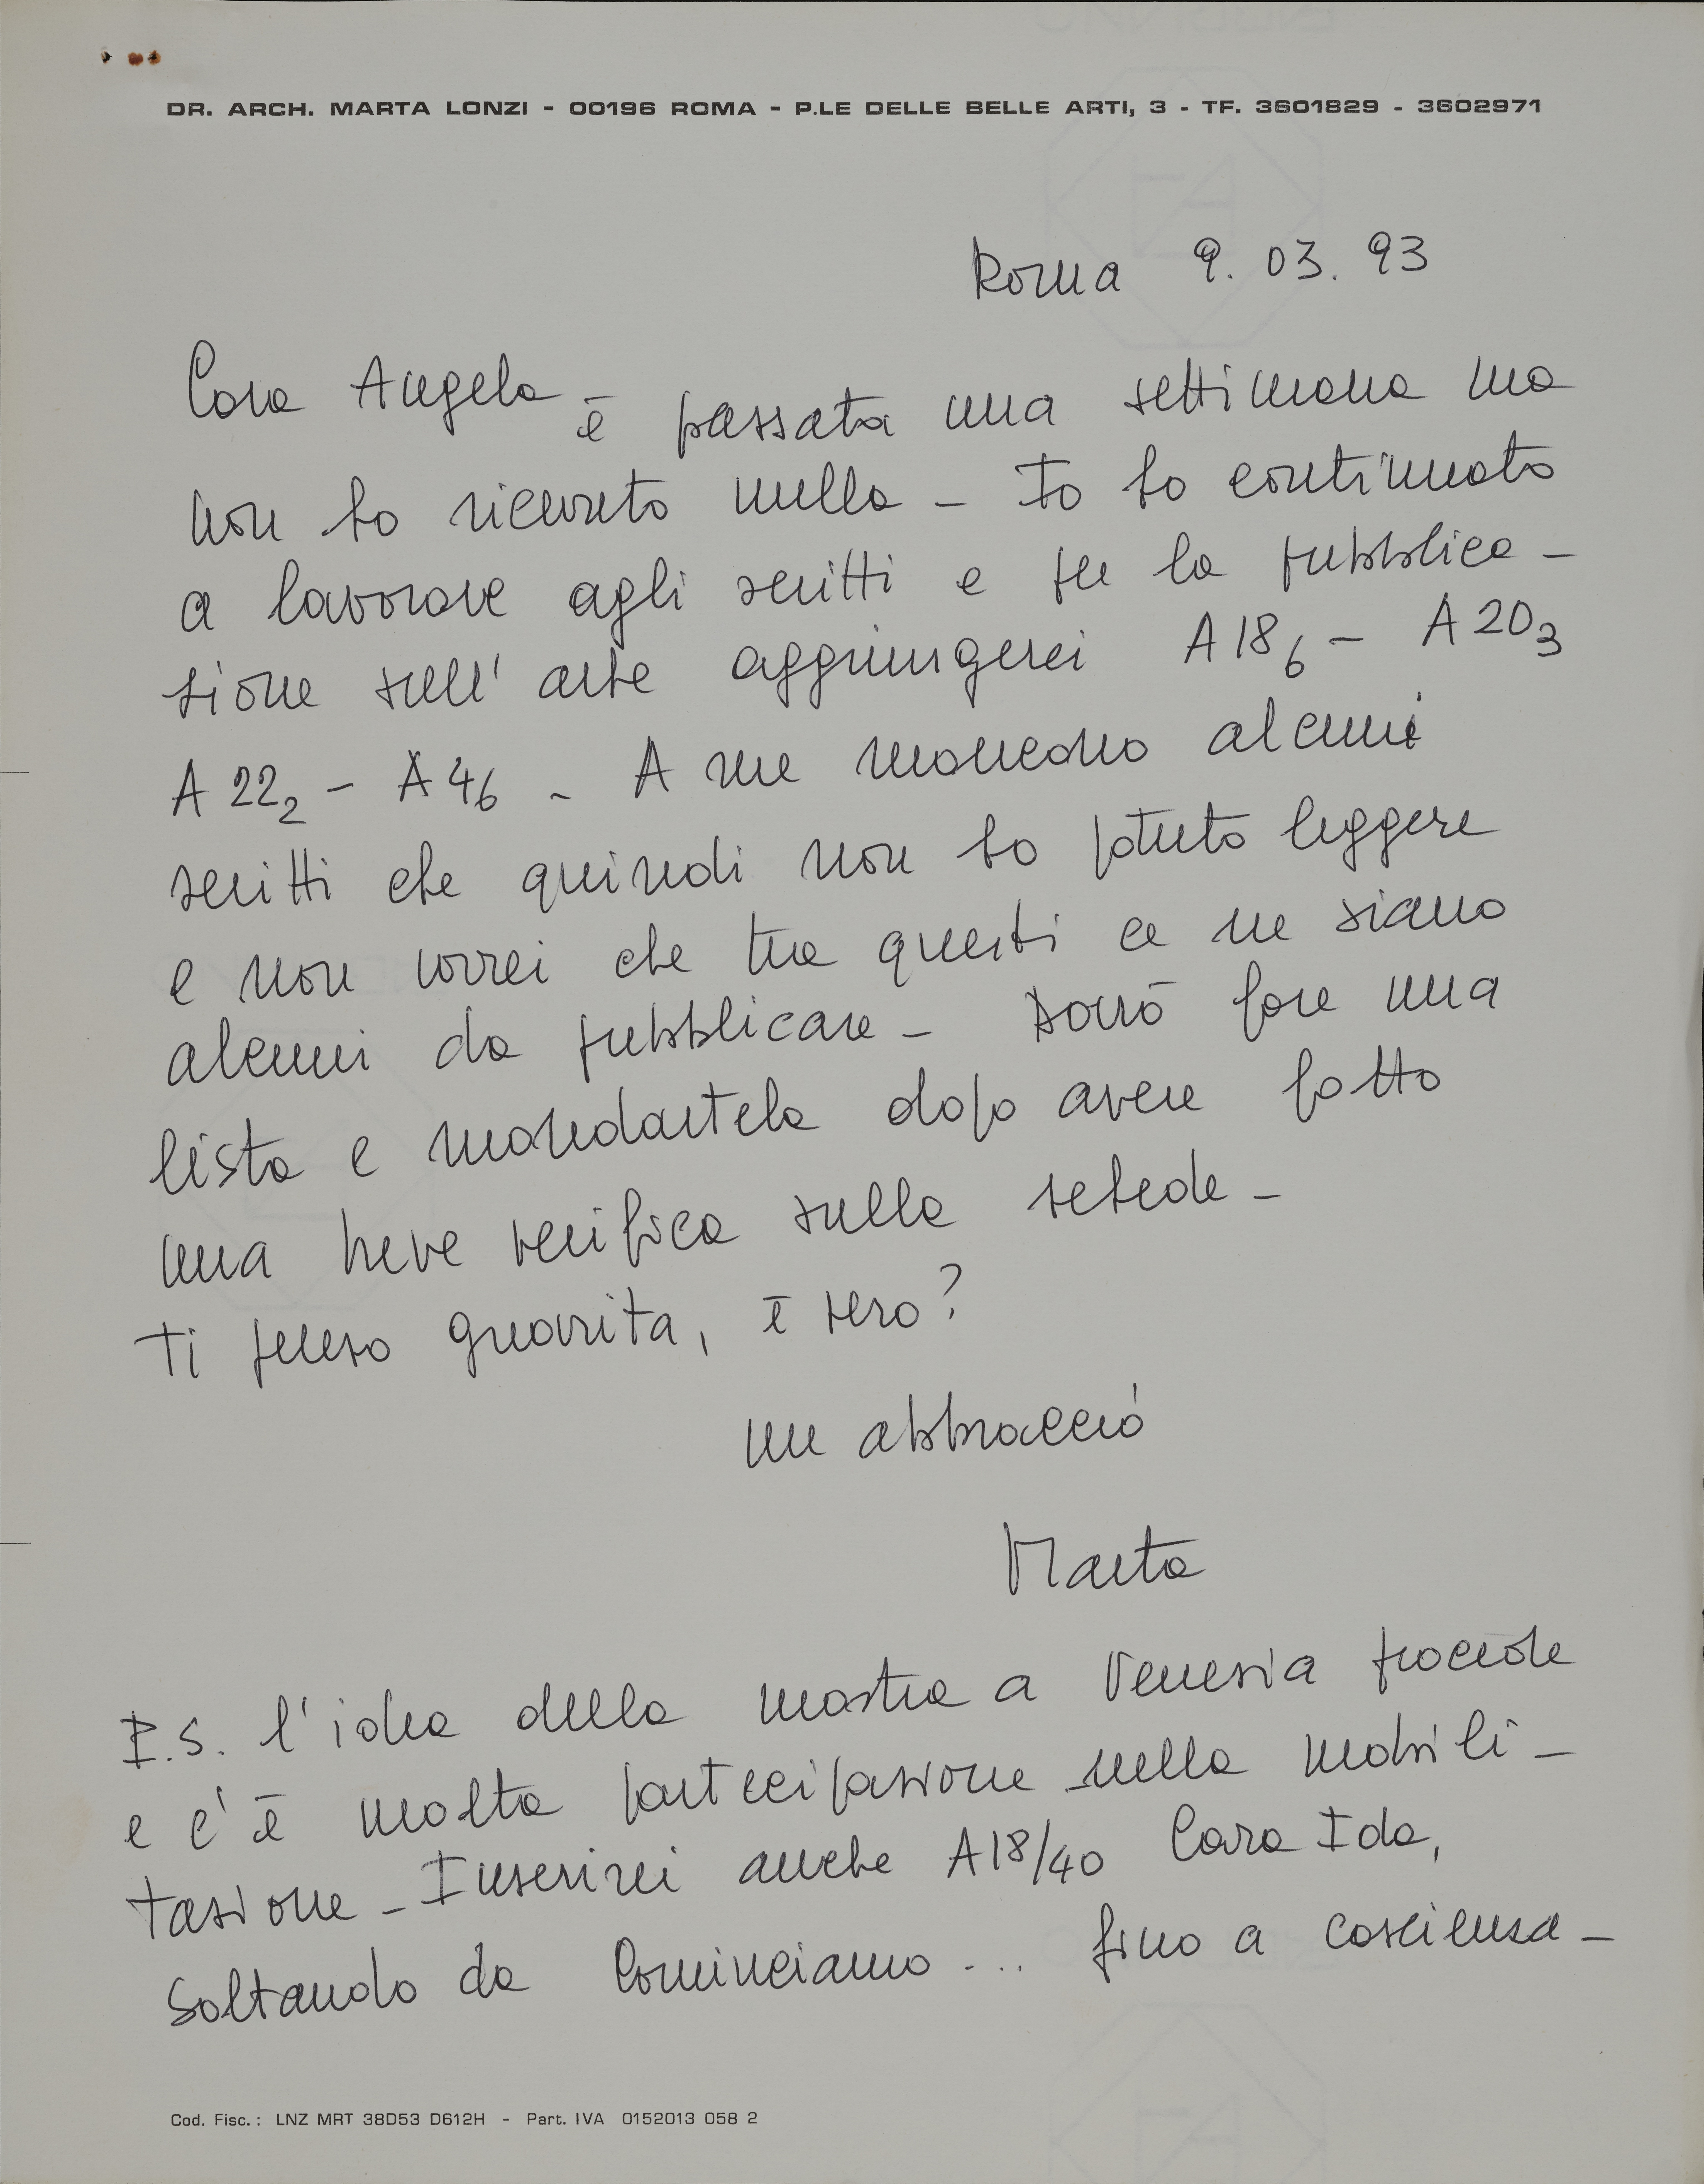 DR. ARCH. MARTA LONZI - 00196 ROMA - P.LE DELLE BELLE ARTI, 3 - TF. 3601829 - 3602971
Roma 9. 03. 93
Cara Angela è passata una settimana ma
non ho ricevuto nulla - Io ho continuato
a lavorare agli scritti e per la pubblica-
zione sull' arte aggiungerei A 18 6 - A 20 3
A 22 2 - A 46 - A me mancano alcuni
scritti che quindi non ho potuto leggere
e non vorrei che tra questi ce ne siano
alcuni da pubblicare - Dovrò fare una
lista e mandartela dopo avere fatto
una breve verifica sulle schede -
Ti penso guarita, è vero?
un abbraccio
Marta
P.S. l'idea della mostra a Venezia procede
e c'è molta partecipazione nella mobili-
tazione - Inserirei anche A18/40 Cara Ida,
soltando da Cominciamo ... fino a coscienza -
Cod. Fisc.: LNZ MRT 38D53 D612H - Part. IVA 0152013 058 2